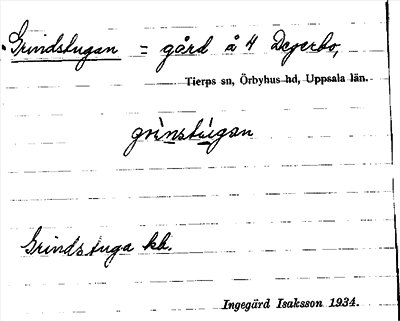 Grindstugan = gård å 4 Degerbo,
Tierps sn, Örbyhus hd, Uppsala län.
grìnstúgan
Grindstuga kk.
Ingegärd Isaksson 1934.